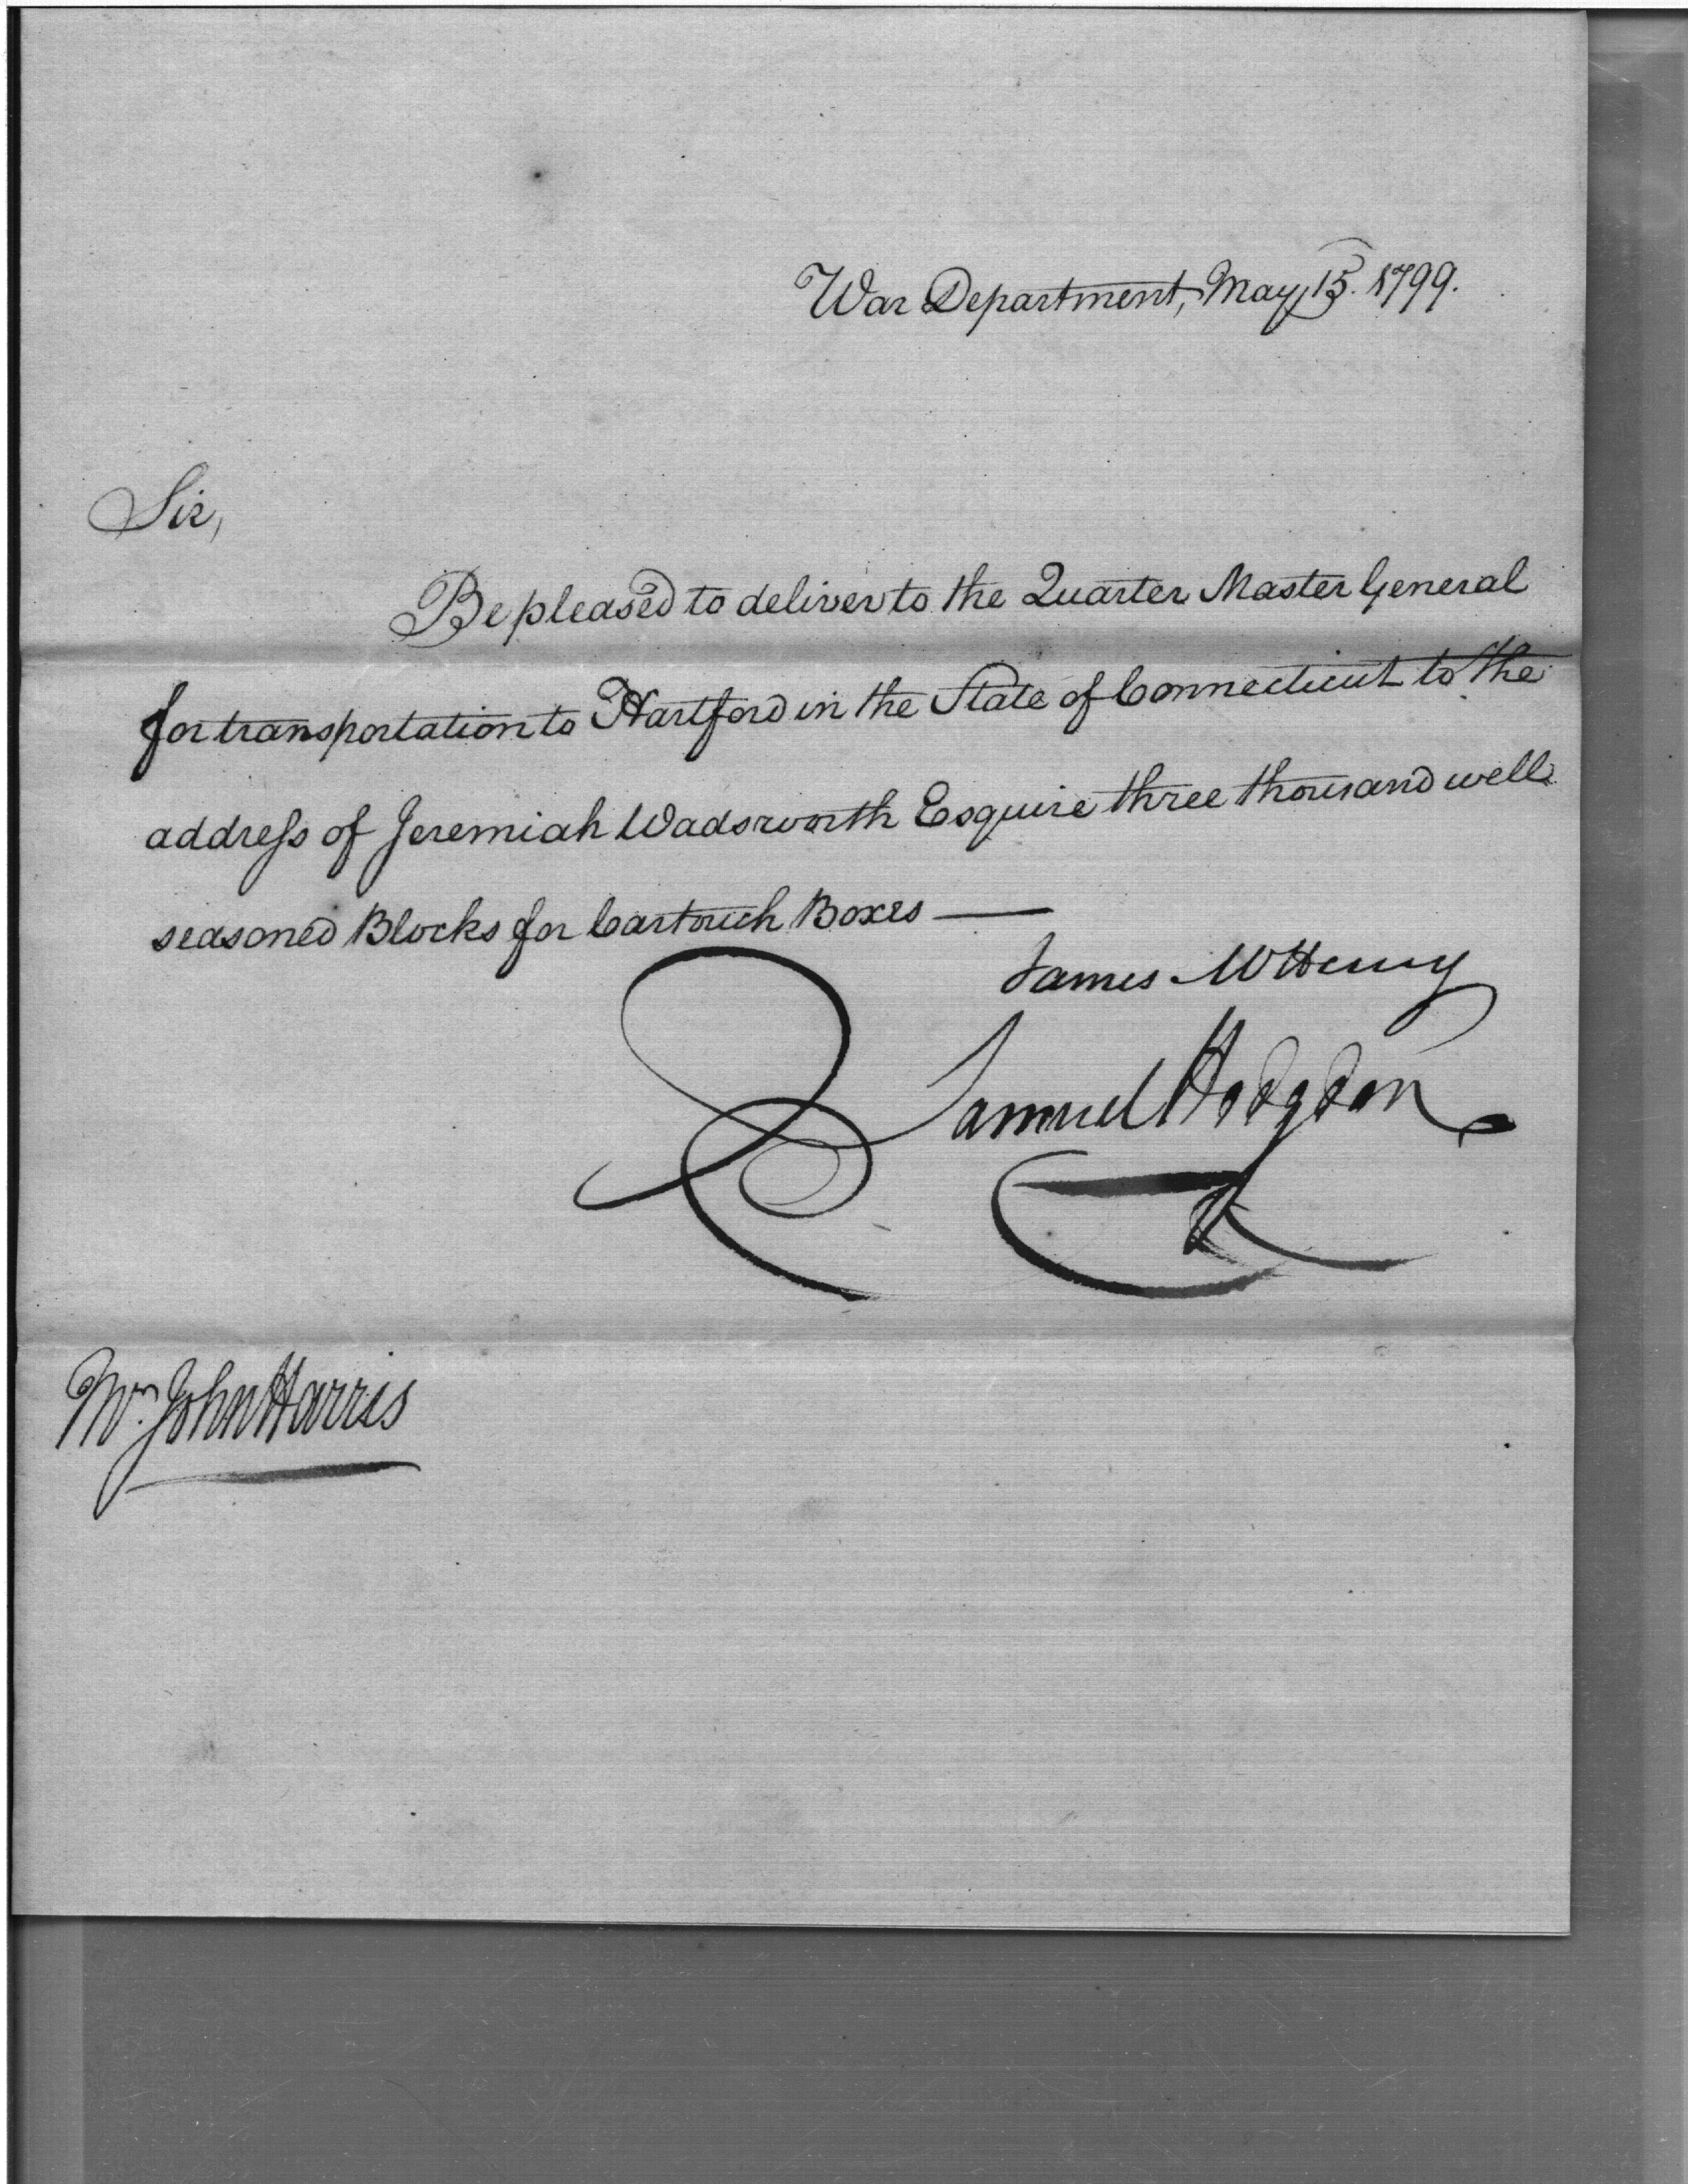 War Department, May 15. 1799.
Sir,
Be pleased to deliver to the Quarter Master General
for transportation to Hartford in the State of Connecticut to the
address of Jeremiah Wadsworth Esquire three thousand well
seasoned Blocks for Cartouch Boxes —
James McHenry
Samuel Hodgdon
Mr. John Harris